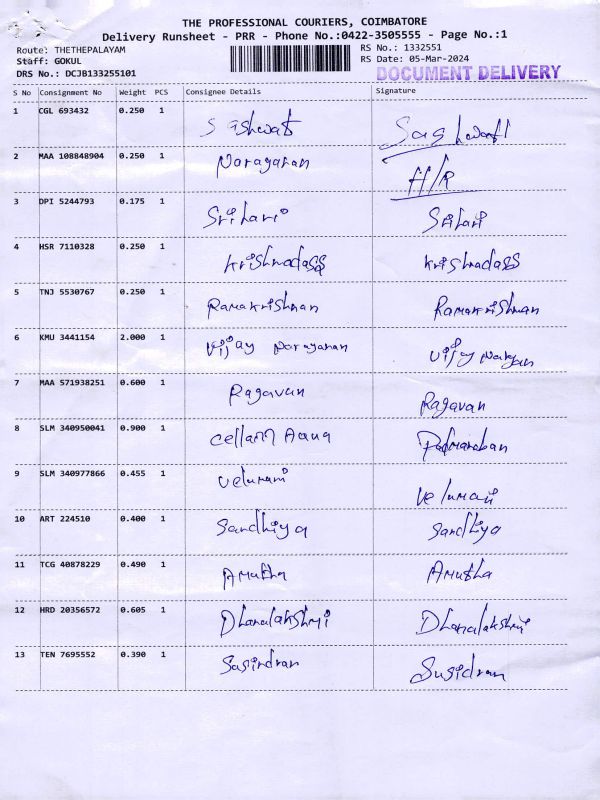 THE PROFESSIONAL COURIERS, COIMBATORE
Delivery Runsheet - PRR - Phone No.:0422-3505555 - Page No.:1
Route: THETHEPALAYAM RS No.: 1332551
Staff: GOKUL RS Date: 05-Mar-2024
DRS No.: DCJB133255101 DOCUMENT DELIVERY
S No Consignment No Weight PCS Consignee Details Signature
1 CGL 693432 0.250 1
2 MAA 108848904 0.250 1 Narayanan H/R
3 DPI 5244793 0.175 1 Srihari Srihari
4 HSR 7110328 0.250 1 Krishnadass Krishnadass
5 TNJ 5530767 0.250 1 Ramakrishnan Ramakrishnan
6 KMU 3441154 2.000 1 Vijay Narayanan Vijay
7 MAA 571938251 0.600 1 Ragavan Ragavan
8 SLM 340950041 0.900 1 Padmanaban
9 SLM 340977866 0.455 1 Velumani Velumani
10 ART 224510 0.400 1 Sandhiya Sandhiya
11 TCG 40878229 0.490 1 Amutha Amutha
12 HRD 20356572 0.605 1 Dhanalakshmi Dhanalakshmi
13 TEN 7695552 0.390 1 Sasindran Susidran